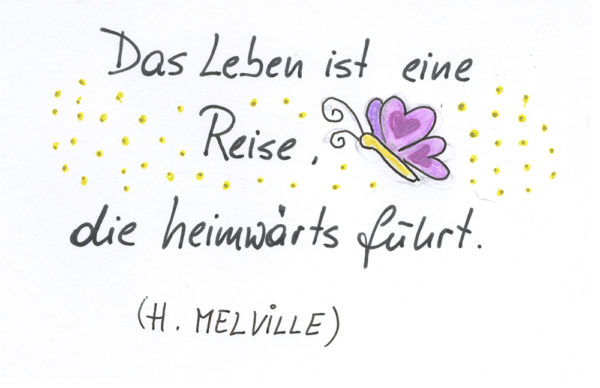 Das Leben ist eine
Reise,
die heimwärts führt.
(H. MELVILLE)